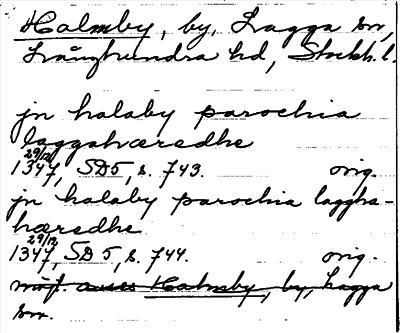 Halmby, by, Lagga sn,
Långhundra hd, Stockh. l.
jn halaby parochia
laggahæredhe
29/12
1347, SD 5, s. 743. orig.
jn halaby parochia laggha-
hæredhe
29/12
1347, SD 5, s. 744. orig.
Halmby, by, Lagga
sn.